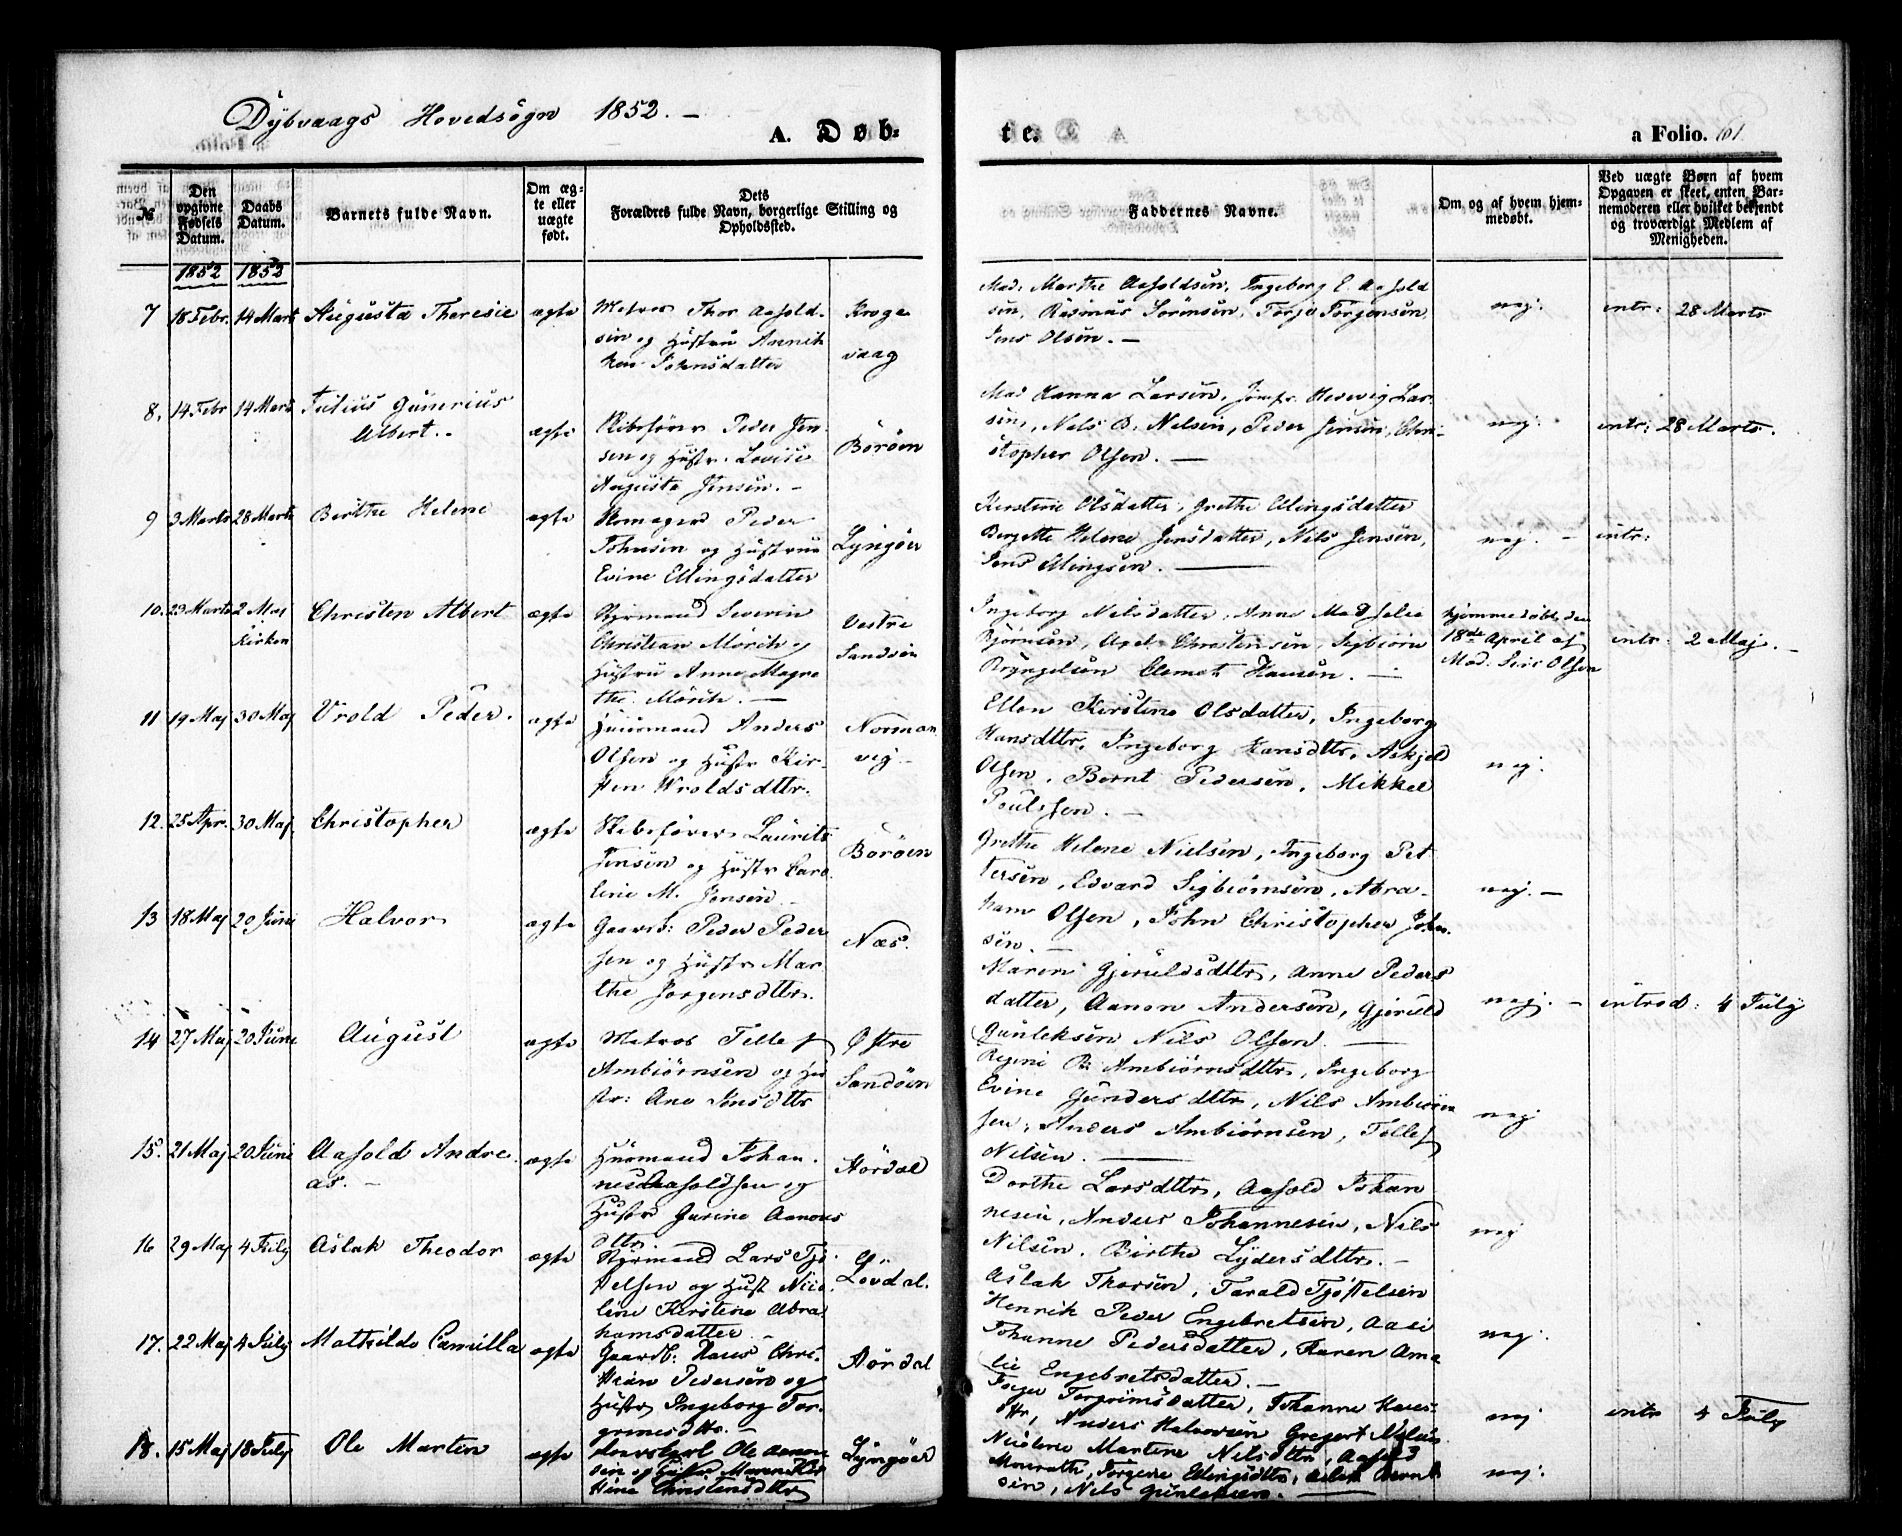 Dybvaags Hovedsogn 1852. –
A. Døb-
te.
a Folio. 61.
No
Den opgivne Fødsels Datum.
Daabs Datum.
Barnets fulde Navn.
Om ægte eller uægte født.
Dets Forældres fulde Navn, borgerlige Stilling og Opholdssted.
Faddernes Navne.
Om og af hvem hjemmedøbt.
Ved uægte Børn af hvem Opgaven er skeet, enten Barnemoderen eller hvilket bekjendt og troværdigt Medlem af Menigheden.
1852 1852
7 18 Febr. 14 Marts Augusta Theresie ægte
Matros Thor Aasold-
sen og Hustru Annich
ken Johnsdatter
Kroge
vaag
Mad: Marthe Aasoldsen, Ingeborg E. Aasold
sen, Rasmus Sørensen, Torje Jørgensen,
Jens Olsen. –
nej:
intr: 28 Marts
8. 14 Febr 14 Marts Julius Gunerius
Albert. –
ægte
Skibsfører Peder Jen-
sen og Hustr. Lovise
Augusta Jensen. –
Borøen
Mad Hanna Larsen, Jomfr. Hedevig Lar-
sen, Nels B. Nelsen, Peder Jensen, Chri-
stopher Olsen. –
nej:
intr: 28 Marts.
9 3 Marts 28 Marts Berthe Helene ægte
Skomager Peder
Johnsen og Hustrue
Evine Ellingsdatter
Lyngøer
Kirstine Olsdatter, Grethe Ellingsdatter
Bergette Helene Jensdatter, Nils Jensen,
Jens Ellingsen. –
nej. –
intr:
10. 23 Marts 2 Maj
Kirken
Christen Albert ægte
Styrmand Severin
Christian Mörch og
Hustru Anne Magre
the Mörch. –
Vestre
Sandøen
Ingeborg Nilsdatter, Anne
Bjørnsen, Axel Christensen, Sigbiørn
Bryngelsen Clemet Hansen. –
hjemmedøbt, den
18de April af
Mad. Siri Olsen
intr: 2 Maj. –
11 19 Maj 30 Maj Vrold Peder. ægte
Huusmand Anders
Olsen og Hustr Kir-
sten Wroldsdttr.
Norman
vig –
Ellen Kirstine Olsdatter, Ingeborg
Hansdttr, Ingeborg Hansdttr, Askjeld
Olsen, Bernt Pedersen, Mikkel
Poulssen. –
nej.
12. 25 Apr. 30 Maj. Christopher ægte
Skibsfører Laurits
Jensen og Hustr Caro
line M. Jensen –
Borøen
Grethe Helene Nielsen, Ingeborg Pet
tersen, Edvard Sigbiørnsen, Abra-
ham Olsen, John Christopher John-
sen. –
nej. –
13 18 Maj 20 Juni Halvor ægte
Gaardb: Peder Peder
sen og Hustr Mar
the Jorgensdttr.
Næs.
Maren Gjeruldsdttr, Anne Peders
datter, Aanon Andersen, Gjeruld
Gunleksen Nils Olsen. –
nej. –
introd: 4 July
14 27 Maj 20 Juni August ægte
Matros Tellef
Ambiørnsen og Hu
str: Ane Jensdttr
Østre
Sandøen
Regine B: Ambiørnsdttr, Ingeborg
Evine Gundersdttr, Nils Ambiørn
sen, Anders Ambiørnsen, Tellef
Nilsen. –
nej:
15. 21 Maj 20 Juni Aasold Andre
as. –
ægte
Huusmand Johan-
nes Aasoldsen og
Hustr Gurine Aanons
dttr
Hørdal
Dorthe Larsdttr, Aasold Johan
nesen, Anders Johannesen, Nils
Nilsen. Birthe Lydersdttr. –
nej
16 29 Maj 4 July Aslak Theodor ægte
Styrmand Lars Tjø
stelsen og Hust Nico
line Kirstine Abra
hamsdatter –
Lovdal.
Aslak Thorsen, Tarald Tjøstelsen
Henrik Peder Engebretsen, Aase
Johanne Pedersdatter, Karen Ama
lie Engebretsdatter. –
nej:
17. 22 Maj 4 July Mathilde Camilla ægte
Gaardb: Hans Chri-
stian Pedersen og
Hustr Ingeborg Tor-
grimsdttr. –
Hørdal
Torger Torgrimsdatter, Johanne Hans-
dttr, Anders Halvorsen Gregert Nilsen
nej
intr 4 July
18. 15 Maj 18 July Ole Marten ægte
Ole Aanon
sen og Hustr Maren Kir
stine Christensdttr
Lyngøer
Martine Nilsdttr, Aasold
Ellingsdttr, Aslak
sen, Nils Gunleksen. –
nej: